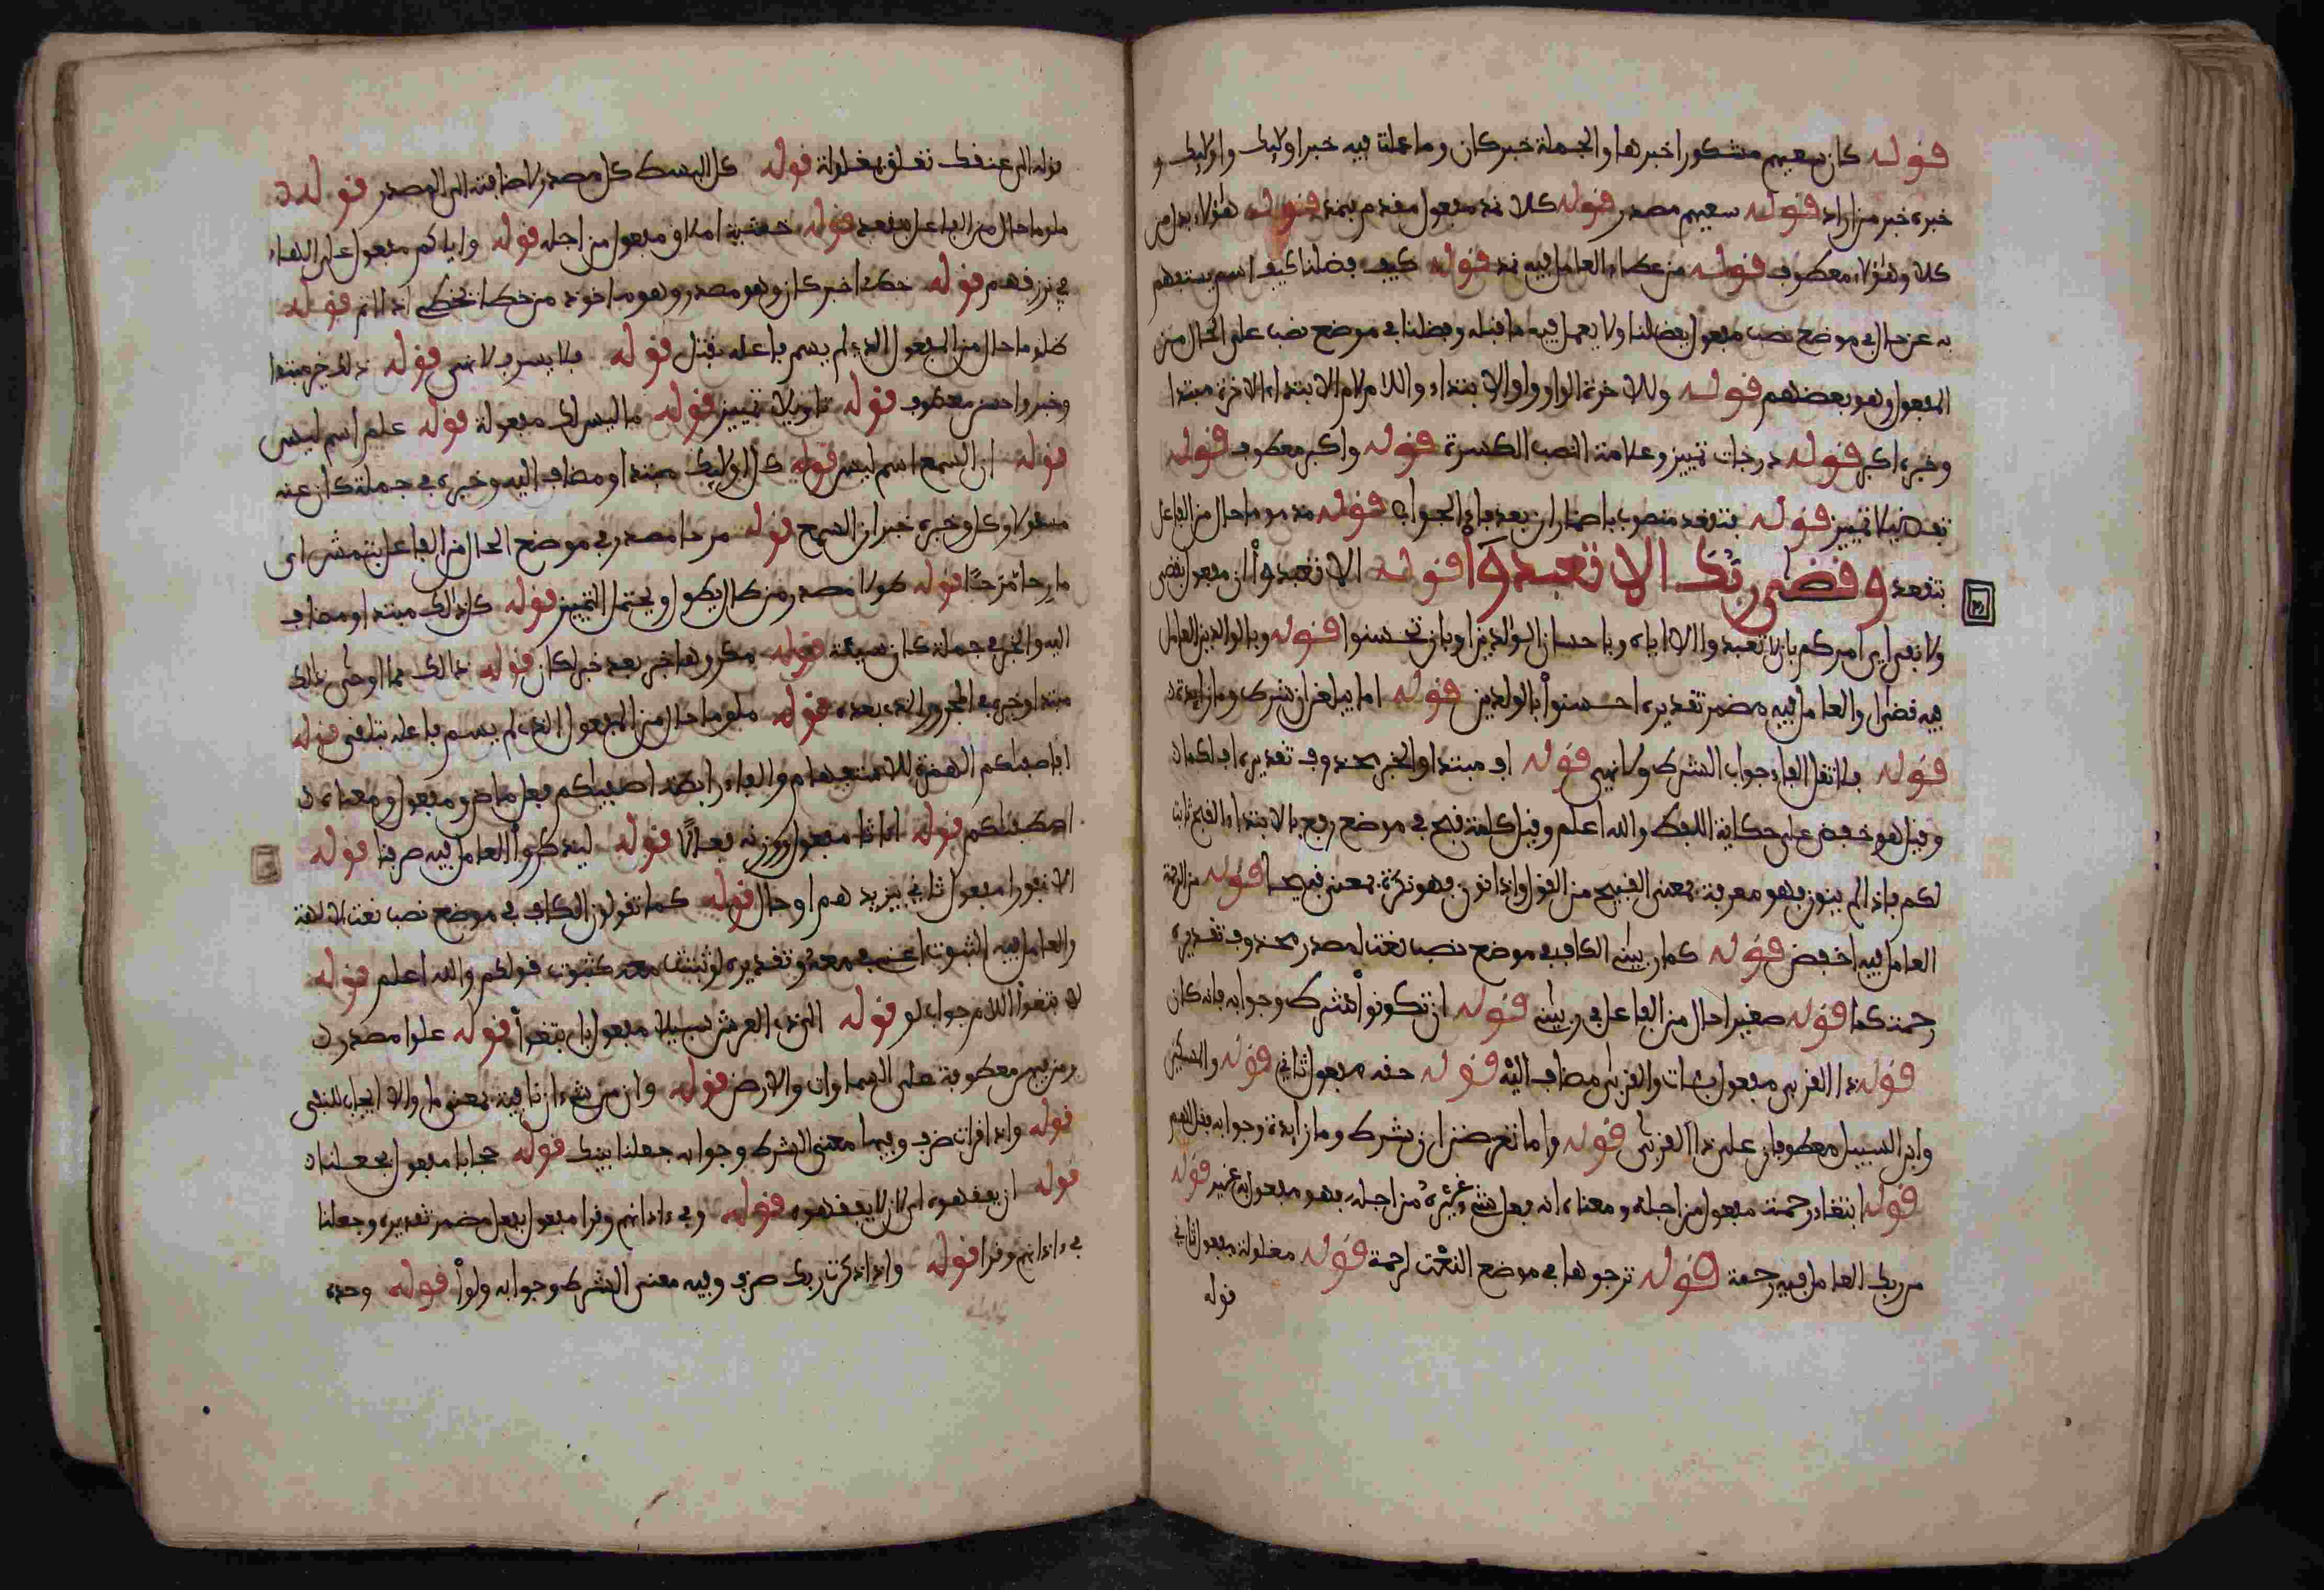 قوله كان سعيهم مشكورا خبرها والجملة خبر كان وما عملت فيه خبر اوليك واوليك و
خبره خبر من اراد قوله سعيهم مصدر قوله كلا نمد مفعول مقدم بنمد قوله هؤلاء بدل من
كلا وهؤلاء معطوف قوله من عطاء العامل فيه نمد قوله كيف فضلنا كيف اسم يستفهم
به عن حال في موضع نصب مفعول بفضلنا ولا يعمل فيه ما قبله وفضلنا في موضع نصب على الحال من
المفعول وهو بعضهم قوله وللاخرة الواو واو الابتداء واللام لام الابتداء الاخرة مبتدا
وخبره اكبر قوله درجات تمييز وعلامة النصب الكسرة قوله واكبر معطوف قوله
تفضيلا تمييز قوله فتقعد منصوب باضمار ان بعد فاء الجواب قوله مذموما حال من الفاعل
بتقعد وقضى ربك الا تعبدوا قوله الا تعبدوا ان مفعول بقضى
ولا نفي اي امركم بان لا تعبدوا الا اياه وباحسان الوالدين او بان تحسنوا قوله وبالوالدين العامل
فيه قضى او العامل فيه مضمر تقديره احسنوا بالولدين قوله اما يبلغن ان شرط وما زايدة
قوله فلا تقل الفاء جواب الشرط ولا نهي قوله اف مبتدا والخبر محذوف تقديره اف لكما
وقيل هو خفض على حكاية اللفظ والله اعلم وقيل كلمة قبح في موضع رفع بالابتداء القبح ثابت
لكم فاذا لم ينون فهو معرفة بمعنى القبيح من القول واذا نون فهو نكرة بمعنى قبيحا قوله من الرحمة
العامل فيه اخفض قوله كما ربيني الكاف في موضع نصب نعت لمصدر محذوف تقديره
رحمة كما قوله صغيرا حال من الفاعل في ربيني قوله ان تكونوا شرط وجوابه فانه كان
قوله ذا القربى مفعول بات والقربى مضاف اليه قوله حقه مفعول ثاني قوله والمسكين
وابن السبيل معطوفان على ذا القربى قوله واما تعرضن ان شرط وما زايدة وجوابه فقل لهم
قوله ابتغاء رحمة مفعول من اجله ومعناه انه فعل شيء غيره من اجله فهو مفعول به غير قوله
من ربك العامل فيه رحمة قوله ترجوها في موضع النعت لرحمة قوله مغلولة مفعول ثاني
قوله
قوله الى عنقك تعلق بمغلولة قوله كل البسط كل مصدر لاضافته الى المصدر قوله
ملوما حال من الفاعل بتقعد قوله خشية املاق مفعول من اجله قوله واياكم مفعول على الهاء
في نرزقهم قوله خطئا خبر كان وهو مصدر وهو ماخوذ من خطا يخطى اذا اثم قوله
مظلوما حال من المفعول الذي لم يسم فاعله بقتل قوله فلا يسرف لا نهي قوله ذلك خير مبتدا
وخبر واحسن معطوف قوله تاويلا تمييز قوله ما ليس لك مفعولة قوله علم اسم ليس
قوله ان السمع اسم ليس قوله كل اوليك مبتدا ومضاف اليه وخبره في جملة كان عنه
مسئولا وكل وخبره خبر ان السمع قوله مرحا مصدر في موضع الحال من الفاعل بتمش اي
مارحا مرحا قوله طولا مصدر من طال يطول ويحتمل التمييز قوله كل ذلك مبتدا ومضاف
اليه والخبر في جملة كان سيئة قوله مكروها خبر بعد خبر لكان قوله ذالك مما اوحى ذالك
مبتدا وخبره في المجرور الذي بعده قوله ملوما حال من المفعول الذي لم يسم فاعله بتلقى قوله
افاصفاكم الهمزة للاستفهام والفاء رابطة اصفيكم فعل ماض ومفعول ومعناه
اصطفاكم قوله اناثا مفعول ووزنه فعالا قوله ليذكروا العامل فيه صرفنا قوله
الا نفورا مفعول ثاني بيزيدهم او حال قوله كما تقولون الكاف في موضع نصب نعت لالهة
والعامل فيه الثبوت اعني في معه وتقديره لو ثبتت معه كثبوت قولكم والله اعلم قوله
لابتغوا اللام جواب لو قوله الى ذي العرش سبيلا مفعول بابتغوا قوله علوا مصدر
ومن فيهن معطوفة على السماوات والارض قوله وان من شيء ان نافية بمعنى ما والا ايجاب للنفي
قوله واذا قرات ظرف وفيها معنى الشرط وجوابه جعلنا بينك قوله حجابا مفعول بجعلنا
قوله ان يفقهوه اي لان لا يفقهوه قوله وفي ءاذانهم وقرا مفعول بفعل مضمر تقديره وجعلنا
في ءاذانهم وقرا قوله واذا ذكرت ربك ظرف وفيه معنى الشرط وجوابه ولوا قوله وحده